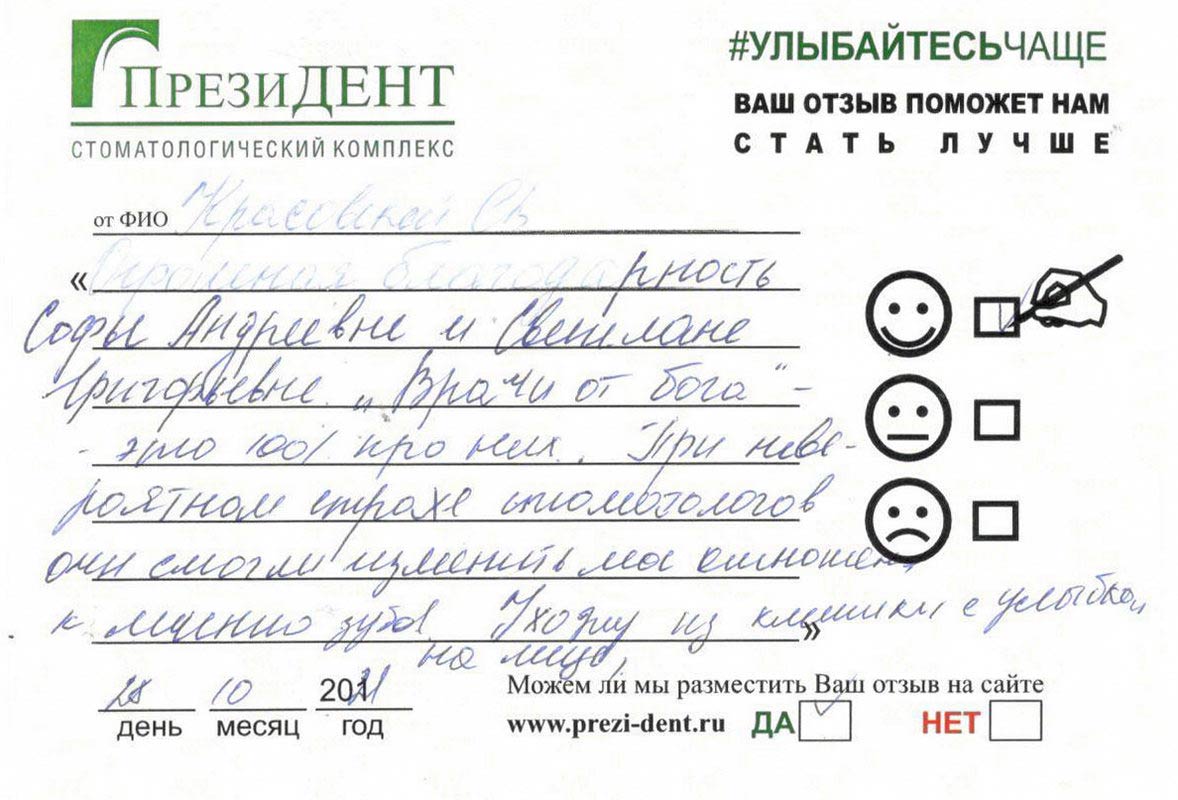 ПРЕЗИДЕНТ
СТОМАТОЛОГИЧЕСКИЙ КОМПЛЕКС
#УЛЫБАЙТЕСЬЧАЩЕ
ВАШ ОТЗЫВ ПОМОЖЕТ НАМ
СТАТЬ ЛУЧШЕ
от ФИО Красовской Св
«Огромная благодарность
Софье Андреевне и Светлане
Григорьевне. „Врачи от бога" –
- это 100% про них. При неве-
роятном страхе стоматологов
они смогли изменить мое отношен.
к лечению зубов. Ухожу из клиники с улыбкой
на лице.»
28 10 2021
день месяц год
Можем ли мы разместить Ваш отзыв на сайте
www.prezi-dent.ru ДА НЕТ